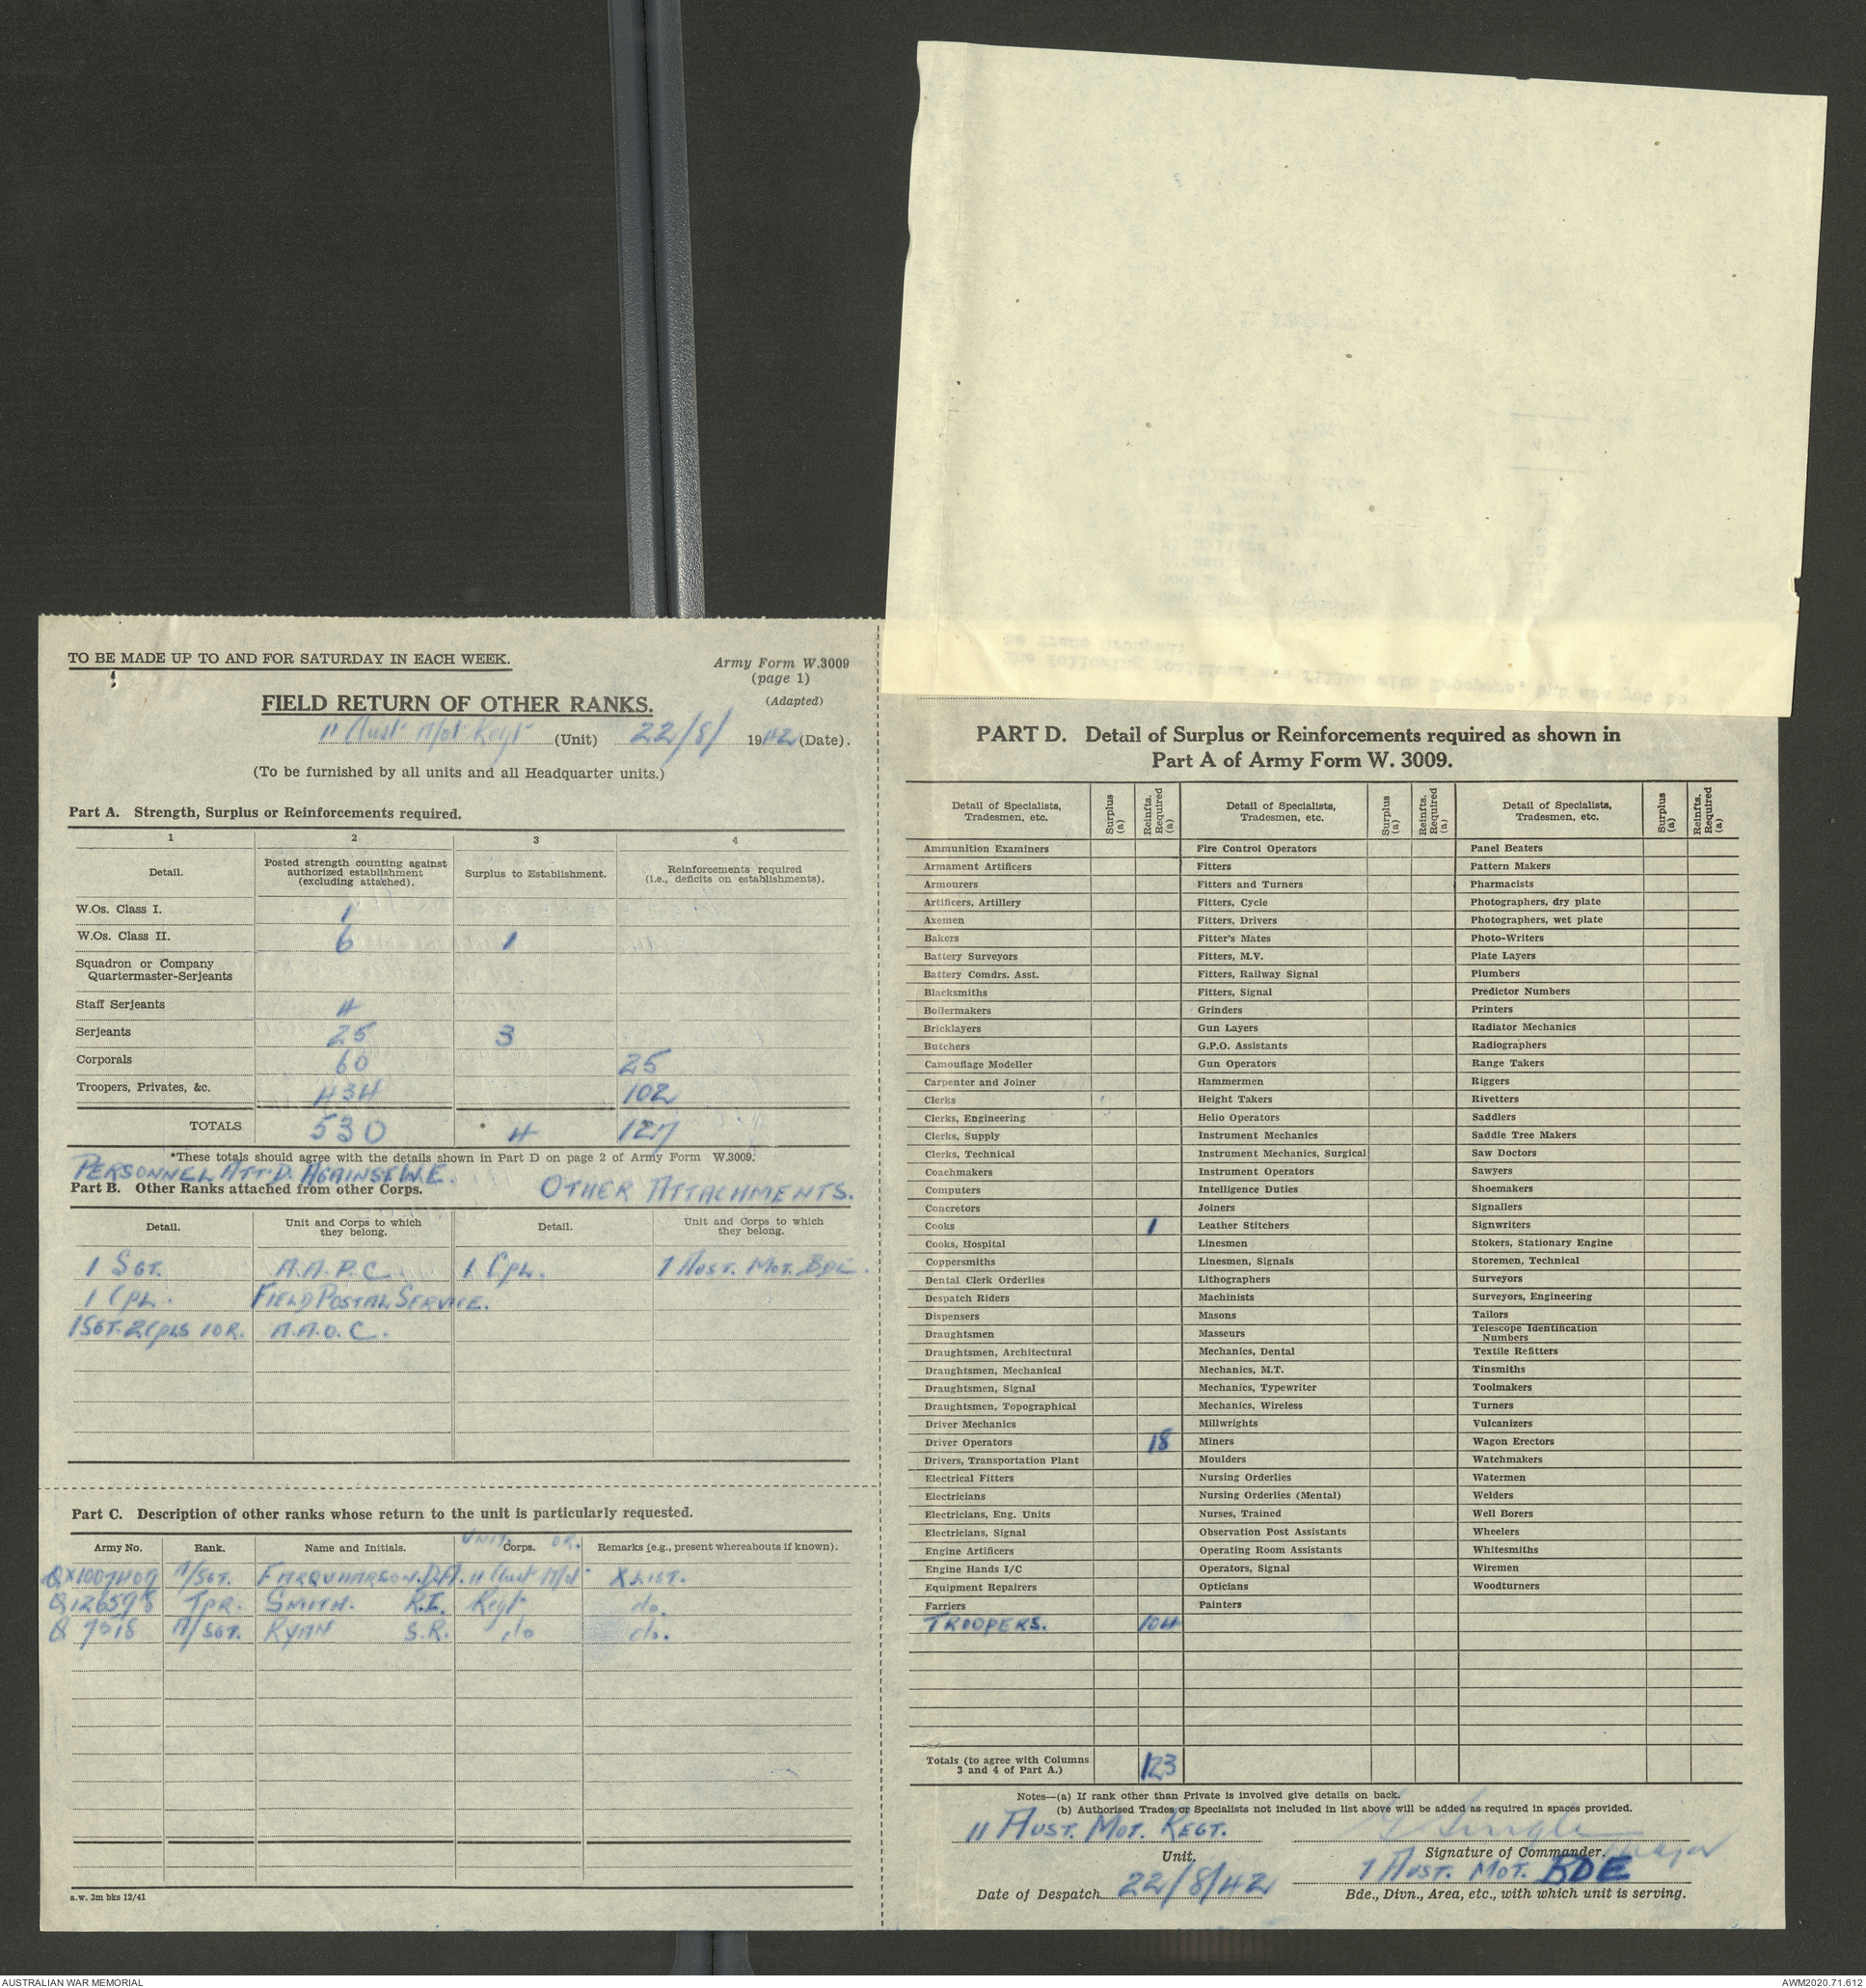 TO BE MADE UP TO AND FOR SATURDAY IN EACH WEEK.
Army Form W.3009
(page 1)
(Adapted)
FIELD RETURN OF OTHER RANKS.
11 Aust Mot Regt (Unit) 22/8/ 1942 (Date).
(To be furnished by all units and all Headquarter units.)
Part A. Strength, Surplus or Reinforcements required.
1 2 3 4
Detail. Posted strength counting against authorized establishment (excluding attached). Surplus to Establishment. Reinforcements required (i.e., deficits on establishments).
W.Os. Class I. 1
W.Os. Class II. 6 1
Squadron or Company
Quartermaster-Serjeants
Staff Serjeants 4
Serjeants 25 3
Corporals 60 25
Troopers, Privates, &c. 434 102
TOTALS 530 * 4 127
*These totals should agree with the details shown in Part D on page 2 of Army Form W.3009.
PERSONNEL ATT'D. AGAINST W.E.
Part B. Other Ranks attached from other Corps. OTHER ATTACHMENTS.
Detail. Unit and Corps to which they belong. Detail. Unit and Corps to which they belong.
1 SGT. A.A.P.C. 1 Cpl. 1 AUST. MOT. BDE.
1 CPL. FIELD POSTAL SERVICE.
1 SGT. 2 Cpls 1 OR. A.A.O.C.
Part C. Description of other ranks whose return to the unit is particularly requested.
UNIT. OR.
Army No. Rank. Name and Initials. Corps. Remarks (e.g., present whereabouts if known).
A/SGT. FARQUHARSON. D.A. 11 Aust Mot X LIST.
Q126598 TPR. SMITH. R.I. Regt do.
Q 7518 A/SGT. RYAN S.R. do do.
a.w. 3m bks 12/41
PART D. Detail of Surplus or Reinforcements required as shown in
Part A of Army Form W. 3009.
Detail of Specialists, Tradesmen, etc. Surplus (a) Reinfts. Required (a) Detail of Specialists, Tradesmen, etc. Surplus (a) Reinfts. Required (a) Detail of Specialists, Tradesmen, etc. Surplus (a) Reinfts. Required (a)
Ammunition Examiners Fire Control Operators Panel Beaters
Armament Artificers Fitters Pattern Makers
Armourers Fitters and Turners Pharmacists
Artificers, Artillery Fitters, Cycle Photographers, dry plate
Axemen Fitters, Drivers Photographers, wet plate
Bakers Fitter's Mates Photo-Writers
Battery Surveyors Fitters, M.V. Plate Layers
Battery Comdrs. Asst. Fitters, Railway Signal Plumbers
Blacksmiths Fitters, Signal Predictor Numbers
Boilermakers Grinders Printers
Bricklayers Gun Layers Radiator Mechanics
Butchers G.P.O. Assistants Radiographers
Camouflage Modeller Gun Operators Range Takers
Carpenter and Joiner Hammermen Riggers
Clerks Height Takers Rivetters
Clerks, Engineering Helio Operators Saddlers
Clerks, Supply Instrument Mechanics Saddle Tree Makers
Clerks, Technical Instrument Mechanics, Surgical Saw Doctors
Coachmakers Instrument Operators Sawyers
Computers Intelligence Duties Shoemakers
Concretors Joiners Signallers
Cooks 1 Leather Stitchers Signwriters
Cooks, Hospital Linesmen Stokers, Stationary Engine
Coppersmiths Linesmen, Signals Storemen, Technical
Dental Clerk Orderlies Lithographers Surveyors
Despatch Riders Machinists Surveyors, Engineering
Dispensers Masons Tailors
Draughtsmen Masseurs Telescope Identification Numbers
Draughtsmen, Architectural Mechanics, Dental Textile Refitters
Draughtsmen, Mechanical Mechanics, M.T. Tinsmiths
Draughtsmen, Signal Mechanics, Typewriter Toolmakers
Draughtsmen, Topographical Mechanics, Wireless Turners
Driver Mechanics Millwrights Vulcanizers
Driver Operators 18 Miners Wagon Erectors
Drivers, Transportation Plant Moulders Watchmakers
Electrical Fitters Nursing Orderlies Watermen
Electricians Nursing Orderlies (Mental) Welders
Electricians, Eng. Units Nurses, Trained Well Borers
Electricians, Signal Observation Post Assistants Wheelers
Engine Artificers Operating Room Assistants Whitesmiths
Engine Hands I/C Operators, Signal Wiremen
Equipment Repairers Opticians Woodturners
Farriers Painters
TROOPERS. 104
Totals (to agree with Columns 3 and 4 of Part A.) 123
Notes—(a) If rank other than Private is involved give details on back.
(b) Authorised Trades or Specialists not included in list above will be added as required in spaces provided.
11 AUST. MOT. REGT.
Unit. Signature of Commander. Major
1 AUST. MOT. BDE
Date of Despatch 22/8/42 Bde., Divn., Area, etc., with which unit is serving.
AUSTRALIAN WAR MEMORIAL
AWM2020.71.612